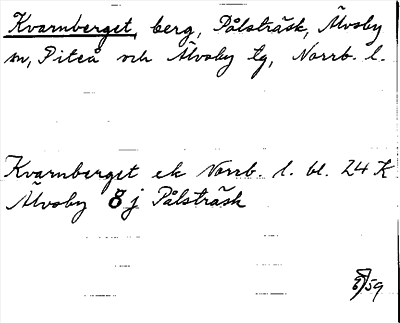 Kvarnberget, berg, Pålsträsk, Älvsby
sn, Piteå och Älvsby tg, Norrb. l.
Kvarnberget ek Norrb. l. bl. 24 K
Älvsby 8 j Pålsträsk
/59